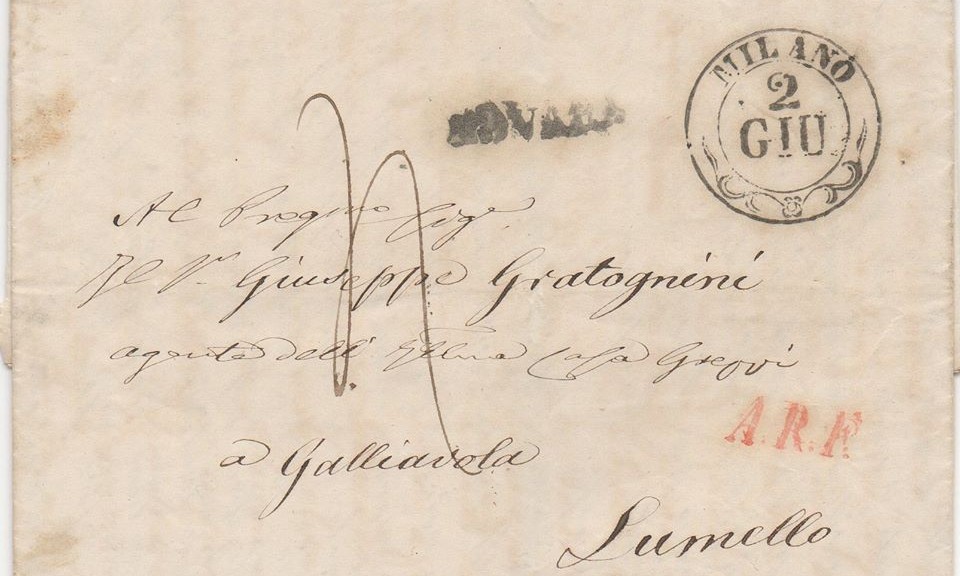 MILANO
2
GIU
NOVARA
Al Pregmo Sigr
Il Sr Giuseppe Gratognini
agente dell' Casa Greppi
A.R.F.
a Galliavola
Lumello